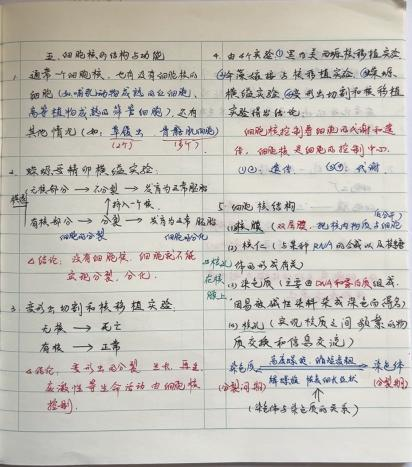 五. 细胞核的结构与功能
1. 通常一个细胞核, 也有没有细胞核的
细胞(如:哺乳动物成熟红细胞、
高等植物成熟的筛管细胞), 还有
其他情况(如: 草履虫 骨骼肌细胞)
(2个) (多个)
2. 蝾螈受精卵横缢实验.
横缢
无核部分 → 不分裂 → 发育为正常胚胎
↑挤入一个核
有核部分 → 分裂 → 发育为正常胚胎
细胞的分裂 细胞的分化
△结论: 没有细胞核, 细胞就不能
实现分裂、分化.
3. 变形虫切割和核移植实验.
无核 → 死亡
有核 → 正常
△结论: 变形虫的分裂、生长、再生、
应激性等生命活动由细胞核
控制.
4. 由4个实验①黑白美西螈核移植实验
②伞藻嫁接与核移植实验 ③蝾螈
横缢实验 ④变形虫切割和核移植
实验得出结论
细胞核控制着细胞的代谢和遗
传, 细胞核是细胞的控制中心.
①②: 遗传 ③④: 代谢
5. 细胞核结构
(1) 核膜 (双层膜, 把核内物质与细胞
质分开)
(2) 核仁 (与某种RNA的合成以及核糖
体的形成有关)
△核孔
在核
膜上
(3) 染色质 (主要由DNA和蛋白质组成,
因易被碱性染料染成深色而得名)
(4) 核孔 (实现核质之间频繁的物
质交换和信息交流)
染色质 高度螺旋, 缩短变粗 染色体
(分裂间期) 解螺旋 (分裂期)
(染色体与染色质的关系)